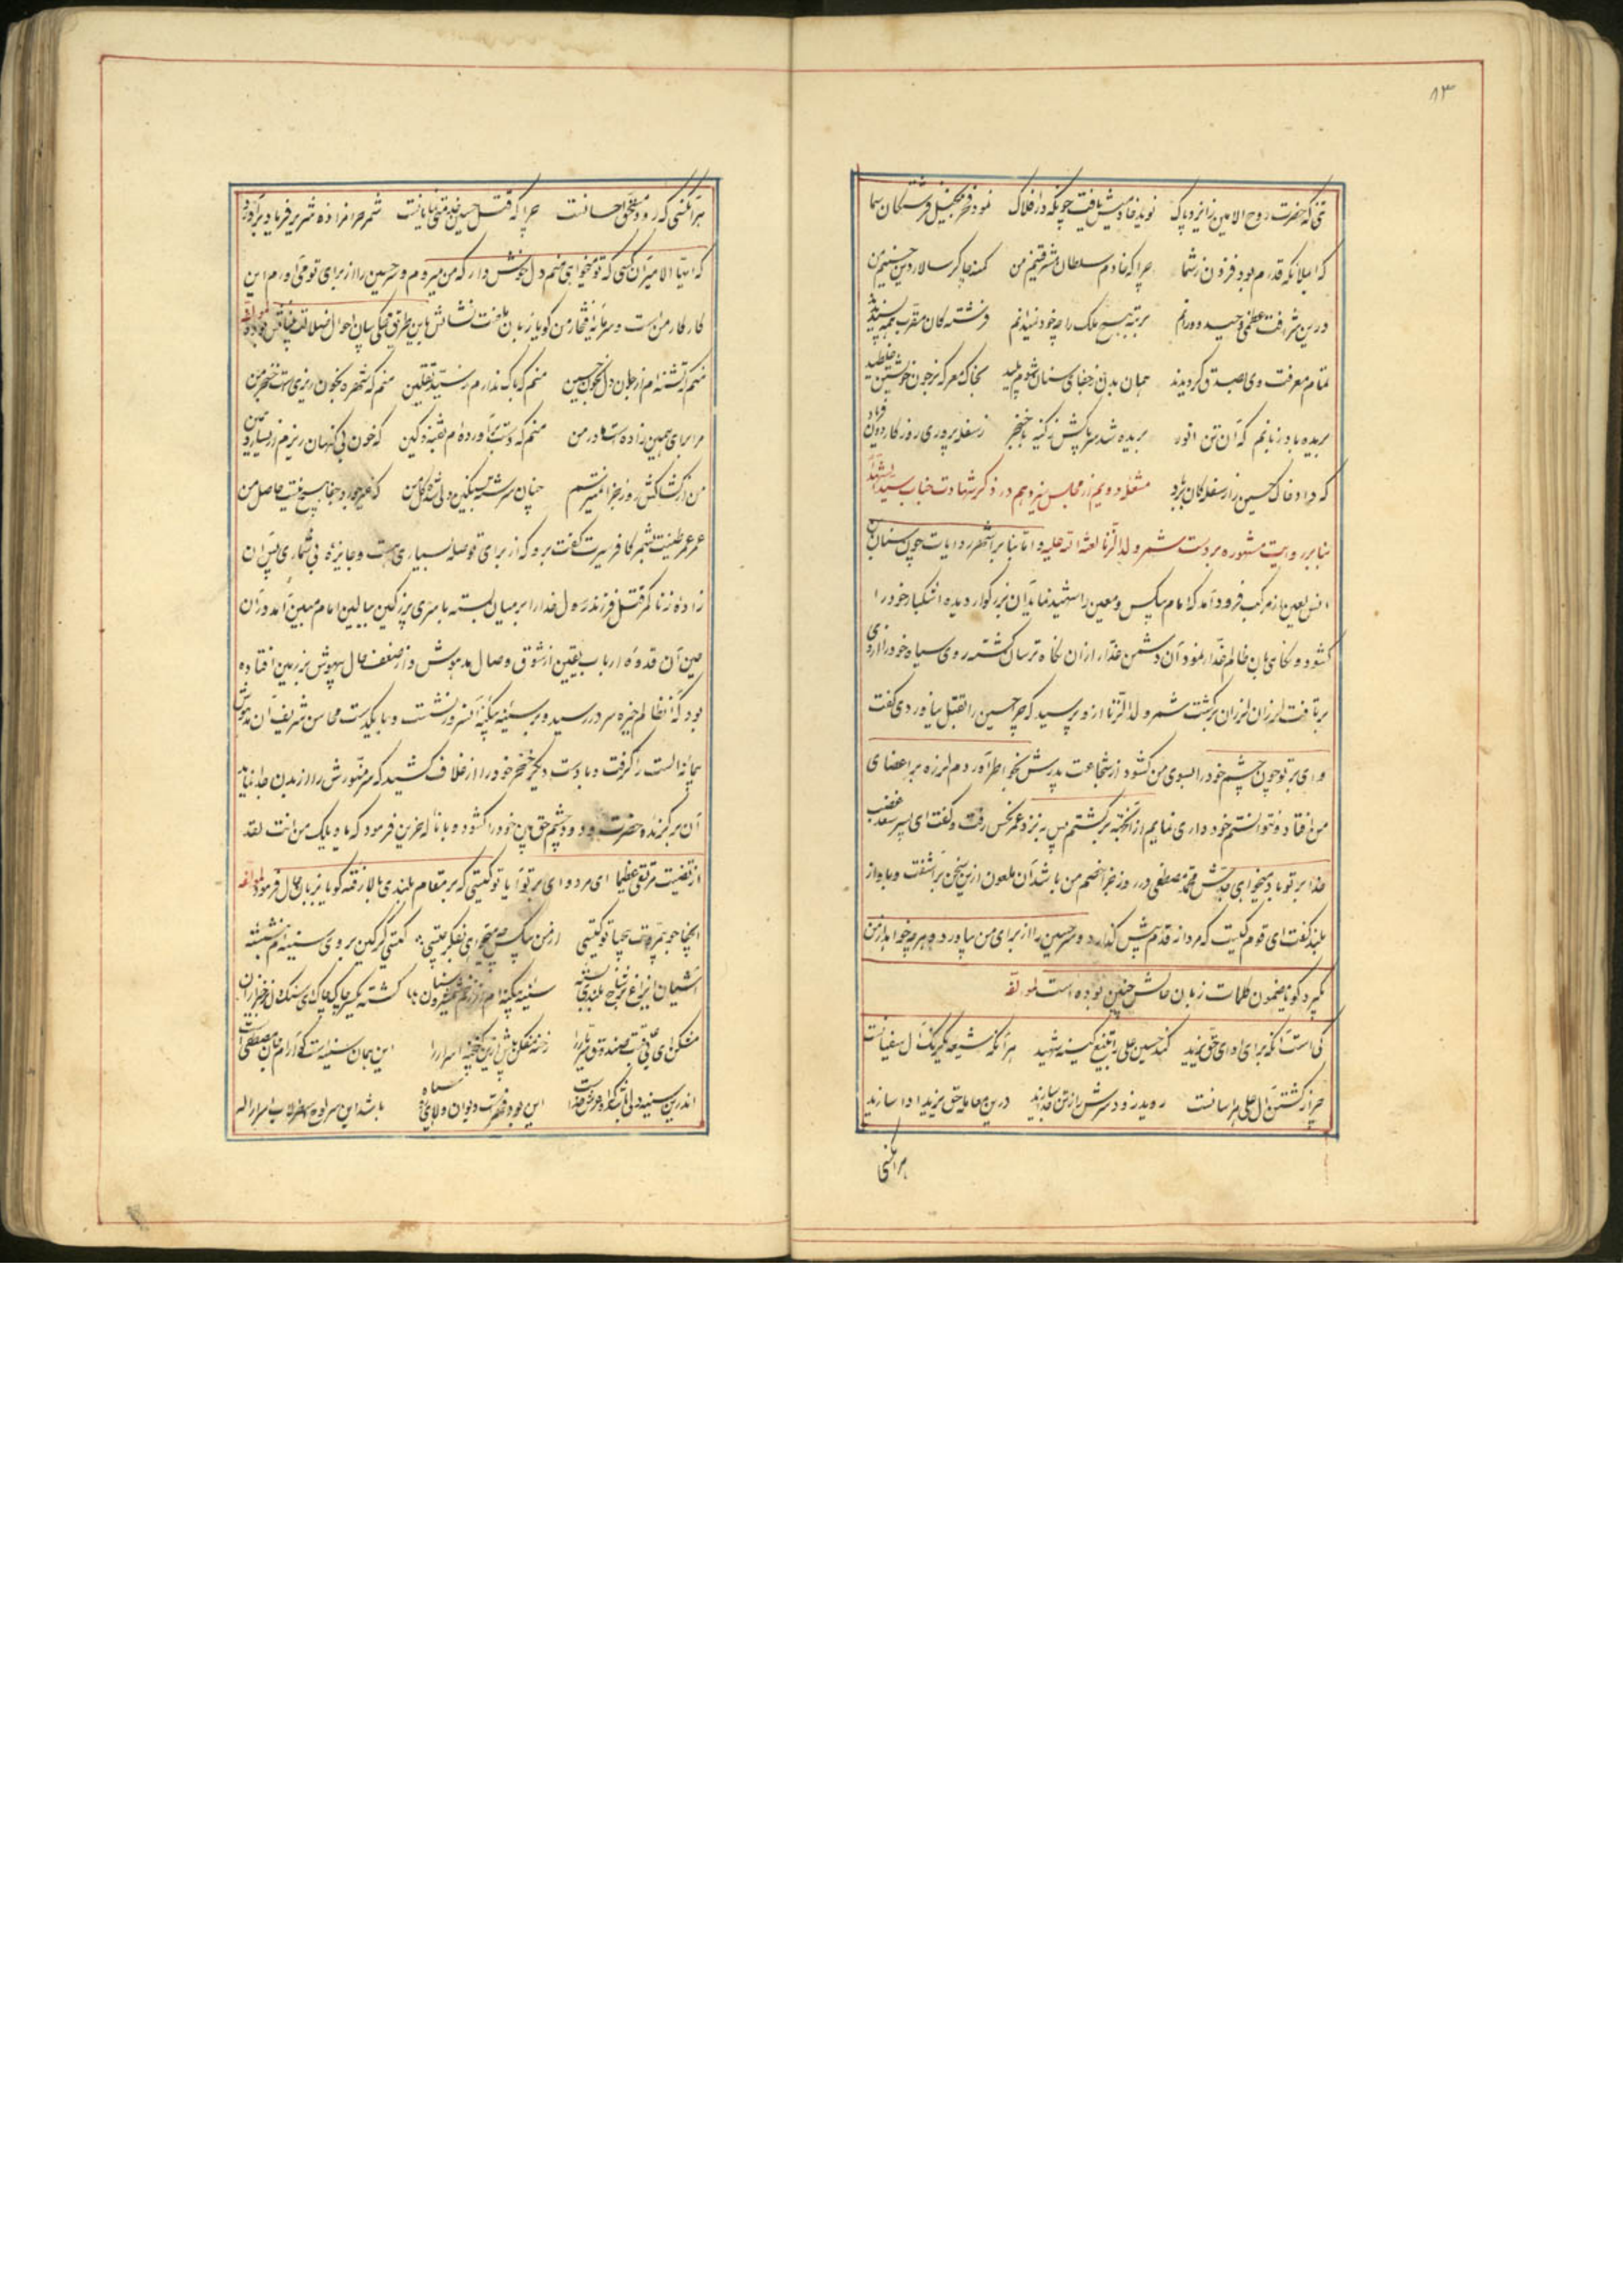 ۸۳
که حضرت روح الامین ز ایزد پاک نوید خادمیش یافت چونکه در افلاک نمود فخر فرشتکان سما
که ایملائکه قدرم بود فزون ز شما چرا که خادم سلطان مشرقینم من کمینه چاکر سالار دین حسینم من
درین شرافت عظمی وحید دورانم برتبه هیچ ملک را چه خود نمیدانم فرشته کان مقرب همه
تمام معرفت وی بصدق کردیدند همان بدن ز جفای سنان شوم پلید بخاک معرکه در خون خویشتن غلطید
بریده باد زبانم که آن تن انور بریده شد سر پاکش ز کینه با خنجر ز سفله پروری روزکار دون فریاد
که داد خاک حسین را ز سفله کان بر باد مشغله دویم از مجلس نیزدهم در ذکر شهادت جناب سید الشهدا
بنا بر روایت مشهوره بر دست شمر ولد الزنا لعنة الله علیه و اما بنا بر اشهر روایات چون سنان بن
انس لعین از مرکب فرود آمد که امام بیکس و معین را شهید نماید آن بزرکوار دیده اشکبار خود را
کشود و نکاهی بان ظالم غدار نمود آن دشمن غدار از آن نکاه ترسان کشته روی سیاه خود را از وی
برتافت لرزان لرزان برکشت شمر ولد الزنا ازو پرسید که چرا حسین را بقتل نیاوردی کفت
وای بر تو چون چشم خود را بسوی من کشود از شجاعت پدرش بخواطر آوردم لرزه بر اعضای
من افتاد و نتوانستم خود داری نمایم از آنجهة برکشتم پس به نزد عمر نحس رفت و کفت ای پسر سعد غضب
خدا بر تو باد میخواهی جدش محمد مصطفی در روز جزا خصم من باشد آن ملعون ازین سخن برآشفت و باواز
بلند کفت ای قوم کیست که مردانه قدم پیش کذارد و سر حسین را از برای من بیاورد و هر چه خواهد از من
بکیرد کویا مضمون کلمات زبان حالش چنین بوده است لمولفه
کی است آنکه برای ادای حق یزید کند حسین علی را بتیغ کینه شهید هر آنکه شیعه یکرنک آل سفیانست
چرا ز کشتن آل علی هراسانست روید زود سرش را ز تن جدا سازید درین معامله حق یزید ادا سازید
هر آنکسی
هر آنکسی که رود مستحق احسانست چرا که قتل حسین شمر حرامزاده شریر فریاد برآورد
که ایها الامیر آن کسی که تو میخواهی منم دل خوش دار که من میروم و سر حسین را از برای تو می آورم این
کار کار من است و سرمایه افتخار من کویا زبان بلاغت نشانش باین طریق بیان احوال بوده لمولفه
منم که تشنه ام از جان و دل بخون حسین منم که باک ندارم ز سید ثقلین منم که شهره بخون ریزی است خنجر من
برای همین زاده است مادر من منم که دست برآورده ام بفتنه و کین که خون بی کنهان ریزم از یسار و یمین
من از کشاکش روز جزا نمیترسم چنان سرشته ز کین دلی من که غیر جور و جفا هیچ نیست حاصل من
عمر طینت بشمر کافر سیرت کفت برو که از برای تو صله بسیاری هست و جایزه بی شماری پس آن
زاده زنا کمر قتل فرزند رسول خدا را بر میان بسته با سری پر ز کین ببالین امام مبین آمد در آن
حین آن قدوه ارباب یقین از شوق وصال مدهوش و از ضعف حال بیهوش بر زمین افتاده
بود که آنظالم خیره سر در رسید و بر سینه بیکینه آنسرور نشست و با یکدست محاسن شریف آن مدهوش
پیمانه الست را کرفت و با دست دیکر خنجر خود را از غلاف کشید که سر منورش را از بدن جدا نماید
آن برکزیده حضرت ودود چشم حق بین خود را کشوده و با ناله حزین فرمود که یا ویلک من انت لقد
ارتقیت مرتقی عظیما ای مرد وای بر تو آیا تو کیستی که بر مقام بلندی بالا رفته کویا بزبان حال فرمود لمولفه
ایجفا جو بیمروت بیحیا تو کیستی از من بیکس چه میخواهی بفکر چیستی کیستی کز کین بروی سینه ام بنشسته
آشیان ایزاغ بر شاخ بلندی بسته سینه بیکینه ام از زخم شمشیر و سنان کشته یکسر چاک چاک ای سنکدل
مشکن ای بی مروت صندوق رخنه مفکن گنجینه اسرار را این همان سینه است کو آرام جان مصطفی است
اندرین سینه دلی باشد که او عرش خداست این بود باشد این